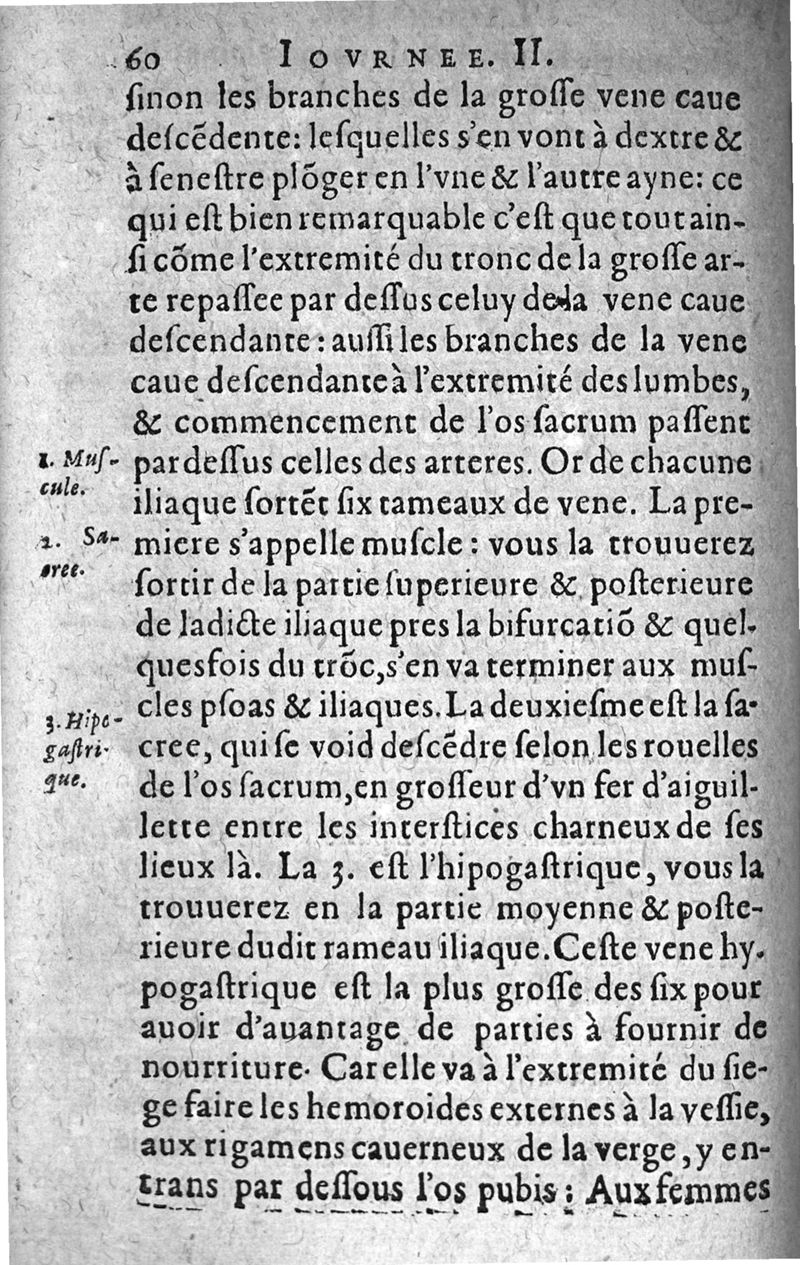 60 IOVRNEE. II.
ſinon les branches de la groſſe vene caue
deſcẽdente: leſquelles s'en vont à dextre &
à ſeneſtre plõger en l'vne & l'autre ayne: ce
qui eſt bien remarquable c'eſt que tout ain-
ſi cõme l'extremité du tronc de la groſſe ar-
te repaſſee par deſſus celuy de la vene caue
deſcendante: auſſi les branches de la vene
caue deſcendante à l'extremité des lumbes,
& commencement de l'os ſacrum paſſent
1. Muſ-
cule.
par deſſus celles des arteres. Or de chacune
iliaque ſortẽt ſix rameaux de vene. La pre-
2. Sa-
cree.
miere s'appelle muſcle: vous la trouuerez
ſortir de la partie ſuperieure & poſterieure
de ladicte iliaque pres la bifurcatiõ & quel-
quesfois du trõc, s'en va terminer aux muſ-
3. Hipo-
gaſtri-
que.
cles pſoas & iliaques. La deuxieſme eſt la ſa-
cree, qui ſe void deſcẽdre ſelon les rouelles
de l'os ſacrum, en groſſeur d'vn fer d'aiguil-
lette entre les interſtices charneux de ſes
lieux là. La 3. eſt l'hipogaſtrique, vous la
trouuerez en la partie moyenne & poſte-
rieure dudit rameau iliaque. Ceſte vene hy-
pogaſtrique eſt la plus groſſe des ſix pour
auoir d'auantage de parties à fournir de
nourriture. Car elle va à l'extremité du ſie-
ge faire les hemoroides externes à la veſſie,
aux rigamens cauerneux de la verge, y en-
trans par deſſous l'os pubis: Aux femmes